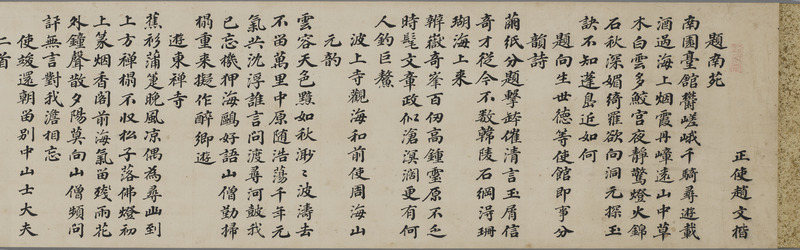 正使趙文楷
題南苑
南園臺館欝嵯峨千騎尋遊載
酒過海上烟霞丹嶂遠山中草
木白雲多鮫宮夜靜驚燈火錦
石秋深媚綺羅欲向洞元探玉
訣不知蓬島近如何
題向生世德等使館即事分
韻詩
蠒紙分題擊鉢催清言玉屑信
奇才從今不數韓陵石網得珊
瑚海上來
辦嶽奇峯百仞高鍾靈原不乏
時髦文章政似滄溟濶更有何
人釣巨鰲
波上寺觀海和前使周海山
元韵
雲容天色黯如秋渺々波濤去
不留萬里中原随浩蕩千年元
氣共沈浮誰言問渡尋河鼓我
已忘機狎海鷗好語山僧勤掃
榻重來擬作醉鄉遊
遊東禪寺
蕉衫蒲箑晚風凉偶為尋幽到
上方禪榻不收松子落佛燈初
上篆烟香閣前海氣留殘雨花
外鐘聲散夕陽莫向山僧頻問
訊無言對我澹相忘
使竣還朝留別中山士大夫
二首